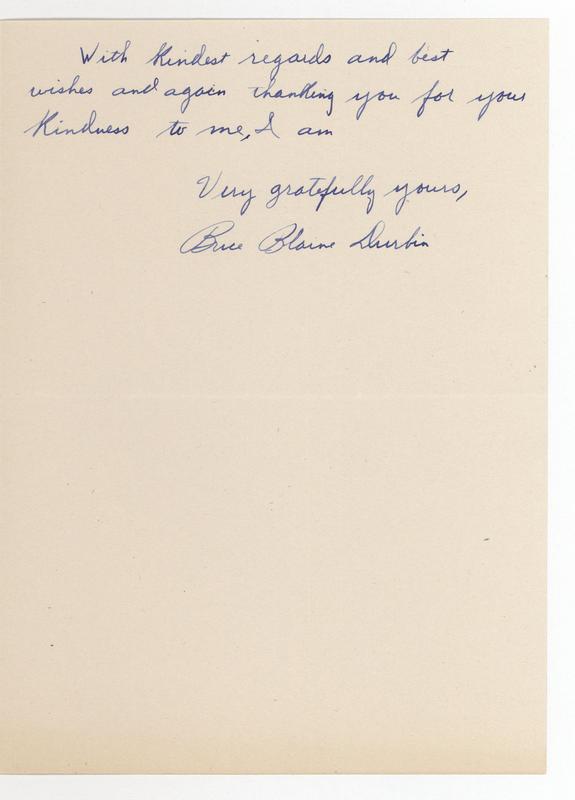 With kindest regards and best
wishes and again thanking you for your
kindness to me, I am
Very gratefully yours,
Brice Blaine Durbin